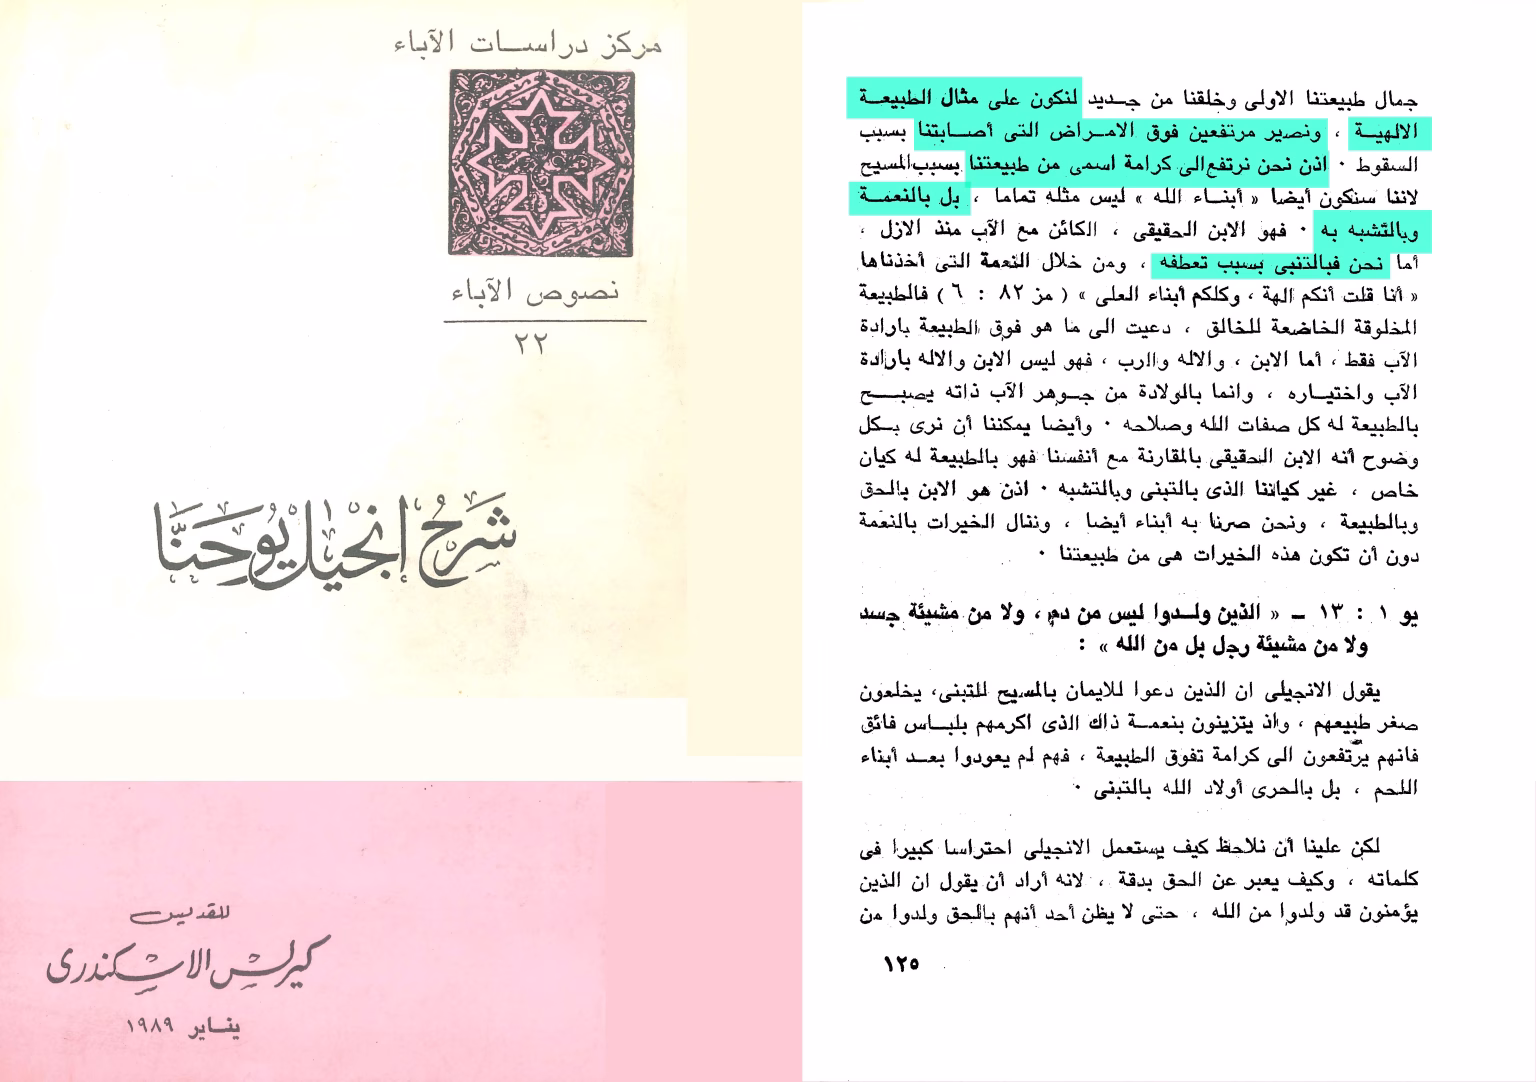 مركز دراسات الآباء
نصوص الآباء
٢٢
شرح إنجيل يوحنا
للقديس
كيرلس الاسكندرى
يناير ١٩٨٩
جمال طبيعتنا الاولى وخلقنا من جديد لنكون على مثال الطبيعة
الالهية ، ونصير مرتفعين فوق الامراض التى أصابتنا بسبب
السقوط ٠ اذن نحن نرتفع الى كرامة اسمى من طبيعتنا بسبب المسيح
لاننا سنكون أيضا « أبناء الله » ليس مثله تماما ، بل بالنعمة
وبالتشبه به ٠ فهو الابن الحقيقى ، الكائن مع الآب منذ الازل ،
أما نحن فبالتبنى بسبب تعطفه ، ومن خلال النعمة التى أخذناها
« أنا قلت أنكم الهة ، وكلكم أبناء العلى » ( مز ٨٢ : ٦ ) فالطبيعة
المخلوقة الخاضعة للخالق ، دعيت الى ما هو فوق الطبيعة بارادة
الآب فقط ، أما الابن ، والاله والرب ، فهو ليس الابن والاله بارادة
الآب واختياره ، وانما بالولادة من جوهر الآب ذاته يصبح
بالطبيعة له كل صفات الله وصلاحه ٠ وأيضا يمكننا أن نرى بكل
وضوح أنه الابن الحقيقى بالمقارنة مع أنفسنا فهو بالطبيعة له كيان
خاص ، غير كياننا الذى بالتبنى وبالتشبه ٠ اذن هو الابن بالحق
وبالطبيعة ، ونحن صرنا به أبناء أيضا ، وننال الخيرات بالنعمة
دون أن تكون هذه الخيرات هى من طبيعتنا ٠
يو ١ : ١٣ – « الذين ولدوا ليس من دم ، ولا من مشيئة جسد
ولا من مشيئة رجل بل من الله » :
يقول الانجيلى ان الذين دعوا للايمان بالمسيح للتبنى، يخلعون
صغر طبيعهم ، واذ يتزينون بنعمة ذاك الذى اكرمهم بلباس فائق
فانهم يرتفعون الى كرامة تفوق الطبيعة ، فهم لم يعودوا بعد أبناء
اللحم ، بل بالحرى أولاد الله بالتبنى ٠
لكن علينا أن نلاحظ كيف يستعمل الانجيلى احتراسا كبيرا فى
كلماته ، وكيف يعبر عن الحق بدقة ، لانه أراد أن يقول ان الذين
يؤمنون قد ولدوا من الله ، حتى لا يظن أحد أنهم بالحق ولدوا من
١٢٥